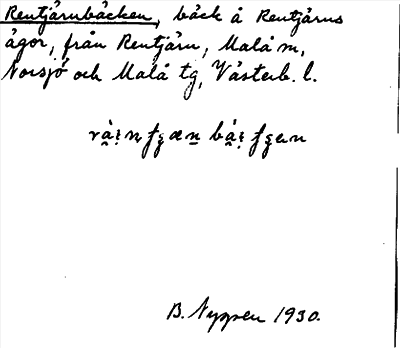 Rentjärnbäcken, bäck å Rentjärns
ägor, från Rentjärn, Malå m,
Norsjö och Malå tg, Västerb. l.
B. Nyppen 1930.